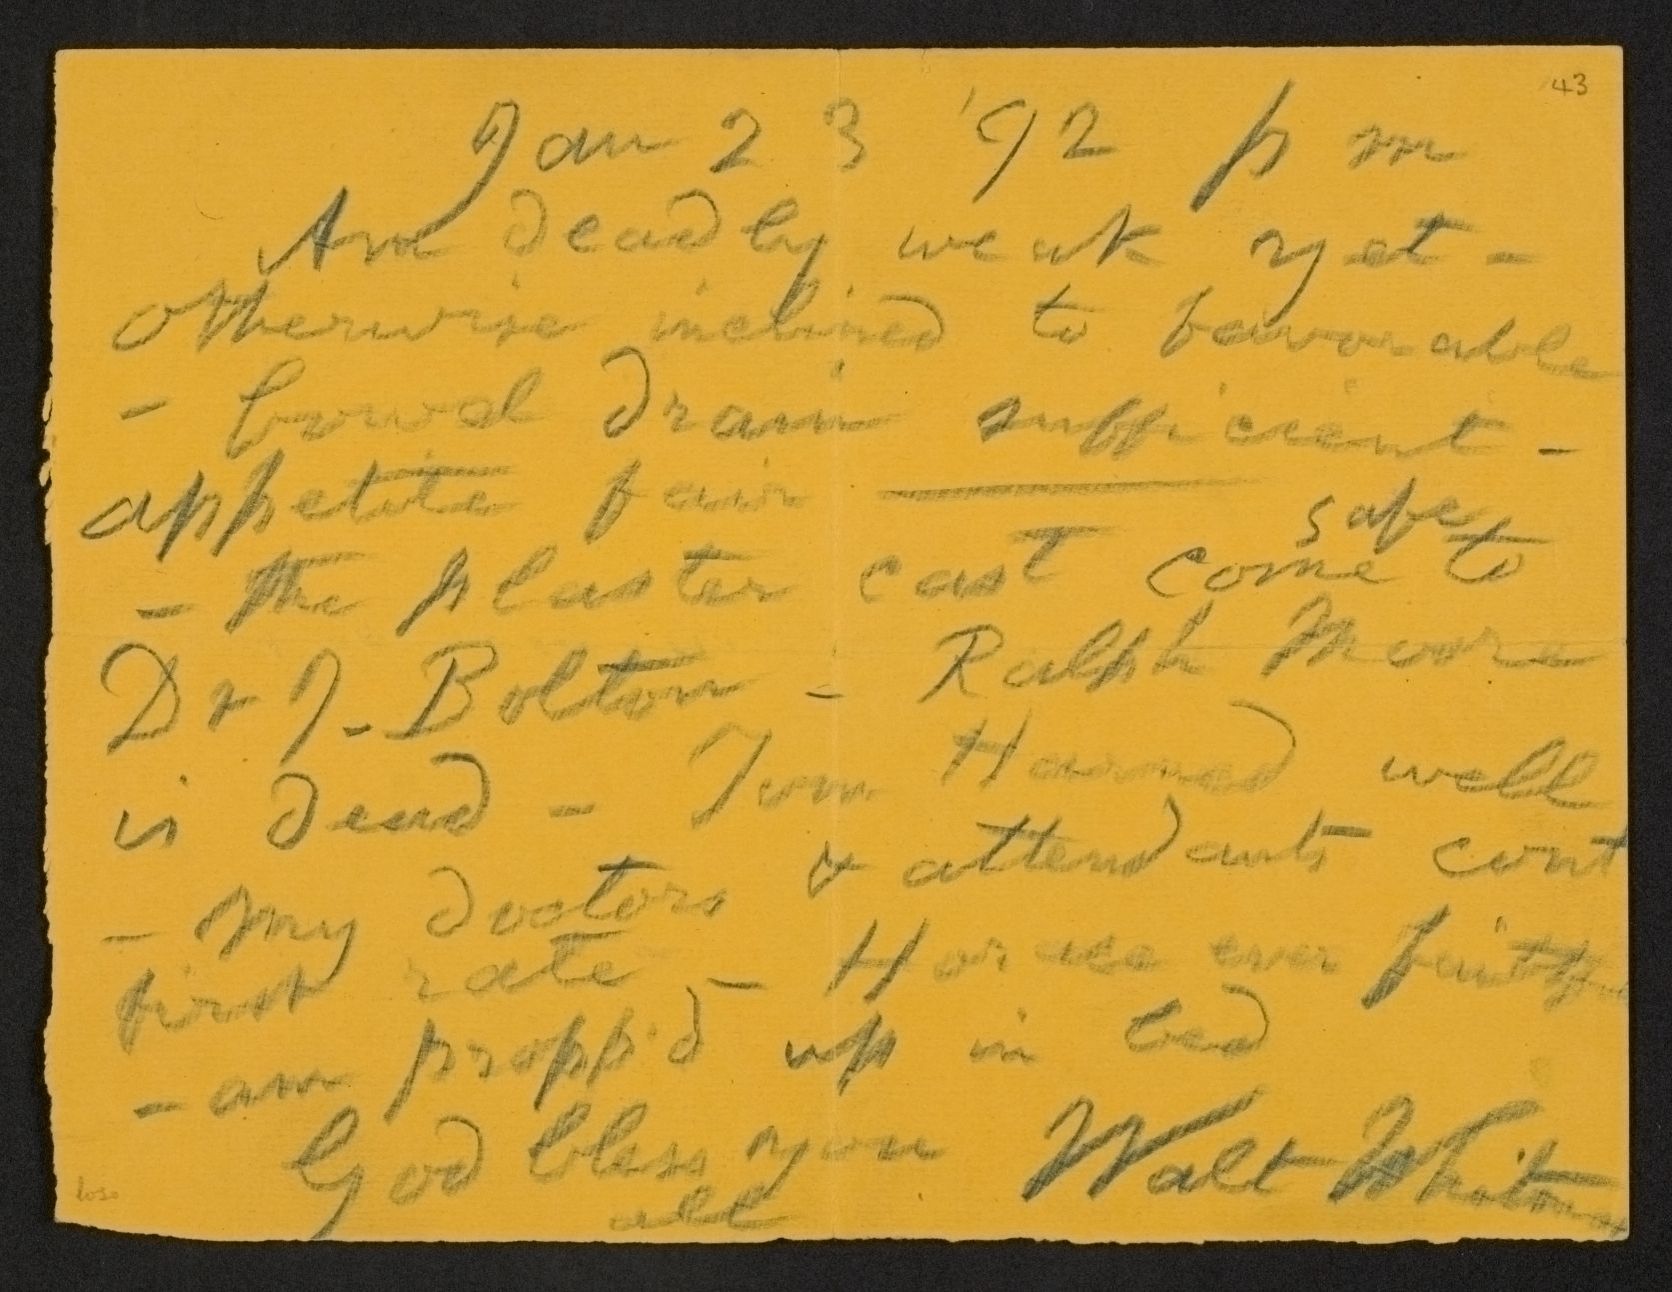 43
Jan 23 '92 p m
Am deadly weak yet -
otherwise inclined to favorable
- bowel drain sufficient -
appetite fair
safe
- the plaster cast come to
Dr J. Bolton - Ralph Moore
is dead - Tom Harned well
- my doctors & attendants cont
first rate - Horace ever faithf
- am propp'd up in bed
God bless you Walt Whitman
all